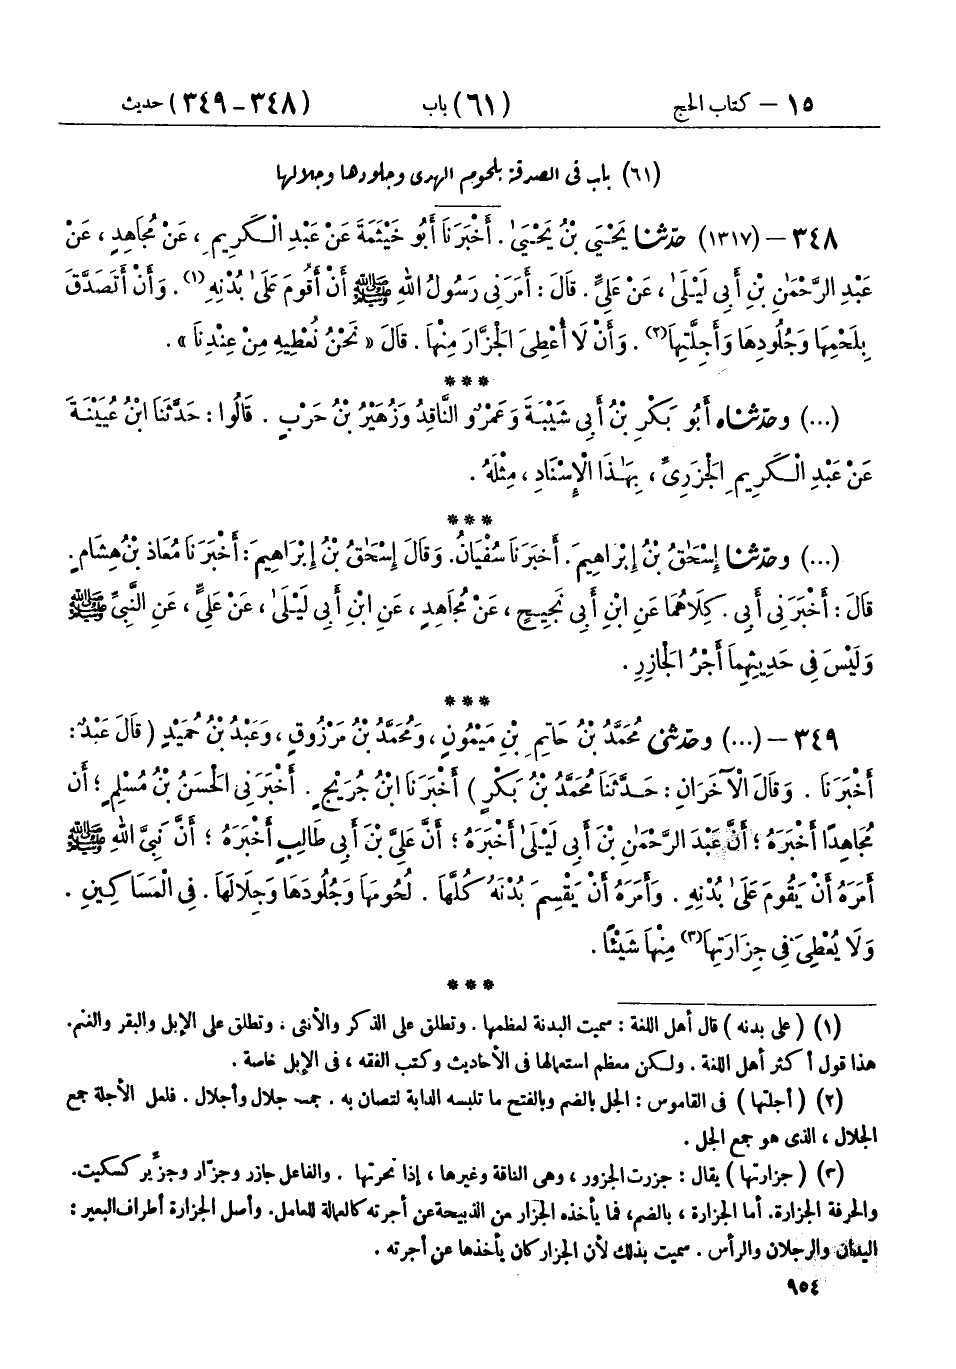 ١٥ – كتاب الحج (٦١) باب (٣٤٨ – ٣٤٩) حديث
(٦١) باب فى الصدقة بلحوم الهدى وجلودها وجلالها
٣٤٨ – (١٣١٧) حدّثنا يَحْيَىٰ بْنُ يَحْيَىٰ . أَخْبَرَنَا أَبُو خَيْثَمَةَ عَنْ عَبْدِ الْكَرِيمِ ، عَنْ مُجَاهِدٍ ، عَنْ
عَبْدِ الرَّحْمَٰنِ بْنِ أَبِي لَيْلَىٰ ، عَنْ عَلِيٍّ . قَالَ : أَمَرَنِي رَسُولُ اللهِ ﷺ أَنْ أَقُومَ عَلَىٰ بُدْنِهِ (١) . وَأَنْ أَتَصَدَّقَ
بِلَحْمِهَا وَجُلُودِهَا وَأَجِلَّتِهَا (٢) . وَأَنْ لَا أُعْطِيَ الْجَزَّارَ مِنْهَا . قَالَ « نَحْنُ نُعْطِيهِ مِنْ عِنْدِنَا » .
***
(...) وحدّثناه أَبُو بَكْرِ بْنُ أَبِي شَيْبَةَ وَعَمْرٌو النَّاقِدُ وَزُهَيْرُ بْنُ حَرْبٍ . قَالُوا : حَدَّثَنَا ابْنُ عُيَيْنَةَ
عَنْ عَبْدِ الْكَرِيمِ الْجَزَرِيِّ ، بِهَٰذَا الْإِسْنَادِ ، مِثْلَهُ .
***
(...) وحدّثنا إِسْحَٰقُ بْنُ إِبْرَاهِيمَ . أَخْبَرَنَا سُفْيَانُ. وَقَالَ إِسْحَٰقُ بْنُ إِبْرَاهِيمَ : أَخْبَرَنَا مُعَاذُ بْنُ هِشَامٍ .
قَالَ : أَخْبَرَنِي أَبِي . كِلَاهُمَا عَنِ ابْنِ أَبِي نَجِيحٍ ، عَنْ مُجَاهِدٍ ، عَنِ ابْنِ أَبِي لَيْلَىٰ ، عَنْ عَلِيٍّ ، عَنِ النَّبِيِّ ﷺ
وَلَيْسَ فِي حَدِيثِهِمَا أَجْرُ الْجَازِرِ .
***
٣٤٩ – (...) وحدّثني مُحَمَّدُ بْنُ حَاتِمِ بْنِ مَيْمُونٍ ، وَمُحَمَّدُ بْنُ مَرْزُوقٍ ، وَعَبْدُ بْنُ حُمَيْدٍ ( قَالَ عَبْدٌ :
أَخْبَرَنَا . وَقَالَ الْآخَرَانِ : حَدَّثَنَا مُحَمَّدُ بْنُ بَكْرٍ ) أَخْبَرَنَا ابْنُ جُرَيْجٍ . أَخْبَرَنِي الْحَسَنُ بْنُ مُسْلِمٍ ؛ أَن
مُجَاهِدًا أَخْبَرَهُ ؛ أَنَّ عَبْدَ الرَّحْمَٰنِ بْنَ أَبِي لَيْلَىٰ أَخْبَرَهُ ؛ أَنَّ عَلِيَّ بْنَ أَبِي طَالِبٍ أَخْبَرَهُ ؛ أَنَّ نَبِيَّ اللهِ ﷺ
أَمَرَهُ أَنْ يَقُومَ عَلَىٰ بُدْنِهِ . وَأَمَرَهُ أَنْ يَقْسِمَ بُدْنَهُ كُلَّهَا . لُحُومَهَا وَجُلُودَهَا وَجِلَالَهَا . فِي الْمَسَاكِينِ .
وَلَا يُعْطِيَ فِي جِزَارَتِهَا (٣) مِنْهَا شَيْئًا .
***
(١) ( على بدنه ) قال أهل اللغة : سميت البدنة لعظمها . وتطلق على الذكر والأنثى ، وتطلق على الإبل والبقر والغنم.
هذا قول أكثر أهل اللغة . ولكن معظم استعمالها فى الأحاديث وكتب الفقه ، فى الإبل خاصة .
(٢) ( أجلتها ) فى القاموس : الجل بالضم وبالفتح ما تلبسه الدابة لتصان به . جمعه جلال وأجلال . فلعل الأجلة جمع
الجلال ، الذى هو جمع الجل .
(٣) ( جزارتها ) يقال : جزرت الجزور ، وهى الناقة وغيرها ، إذا نحرتها . والفاعل جازر وجزّار وجزّير كسكيت.
والحرفة الجزارة. أما الجزارة ، بالضم، فما يأخذه الجزار من الذبيحة عن أجرته كالعمالة للعامل. وأصل الجزارة أطراف البعير :
اليدان والرجلان والرأس . سميت بذلك لأن الجزار كان يأخذها عن أجرته .
٩٥٤